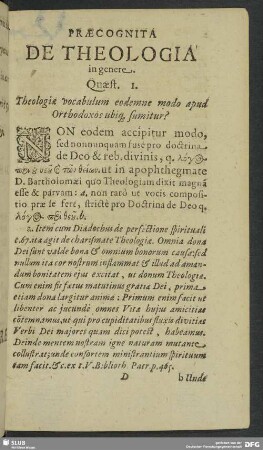 PRÆCOGNITA
DE THEOLOGIA
in genere.
Quæst. 1.
Theologiæ vocabulum eodemne modo apud
Orthodoxos ubiq; sumitur?
NON eodem accipitur modo,
sed nonnunquam fusè pro doctrina
de Deo & reb. divinis, q.
ut in apophthegmate
D. Bartholomæi quo Theologiam dixit magnã
esse & parvam: a. non rarò ut vocis composi-
tio præ se fert, strictè pro Doctrina de Deo q.
b.
2. Item cum Diadochus de perfectione spirituali
c.67. ita agit de charismate Theologiæ. Omnia dona
Dei sunt valde bona & omnium bonorum causæ: sed
nullum ita cor nostrum inflammat & illud ad aman-
dum bonitatem ejus excitat, ut donum Theologiæ.
Cum enim sit fœtus matutinus gratiæ Dei, prima
etiam dona largitur animæ: Primum enim facit ut
libenter ac jucundè omnes Vitæ hujus amicitias
cõtemnamus, ut qui pro cupiditatibus fluxis divitias
Verbi Dei majores quam dici potest, habeamus.
Deinde mentem nostram igne naturam mutante
collustrat; unde consortem ministrantium spirituum
eam facit. &c. ex t. V. Biblioth. Patr p. 465.
D
b Unde
SLUB
Wir führen Wissen.
DFG